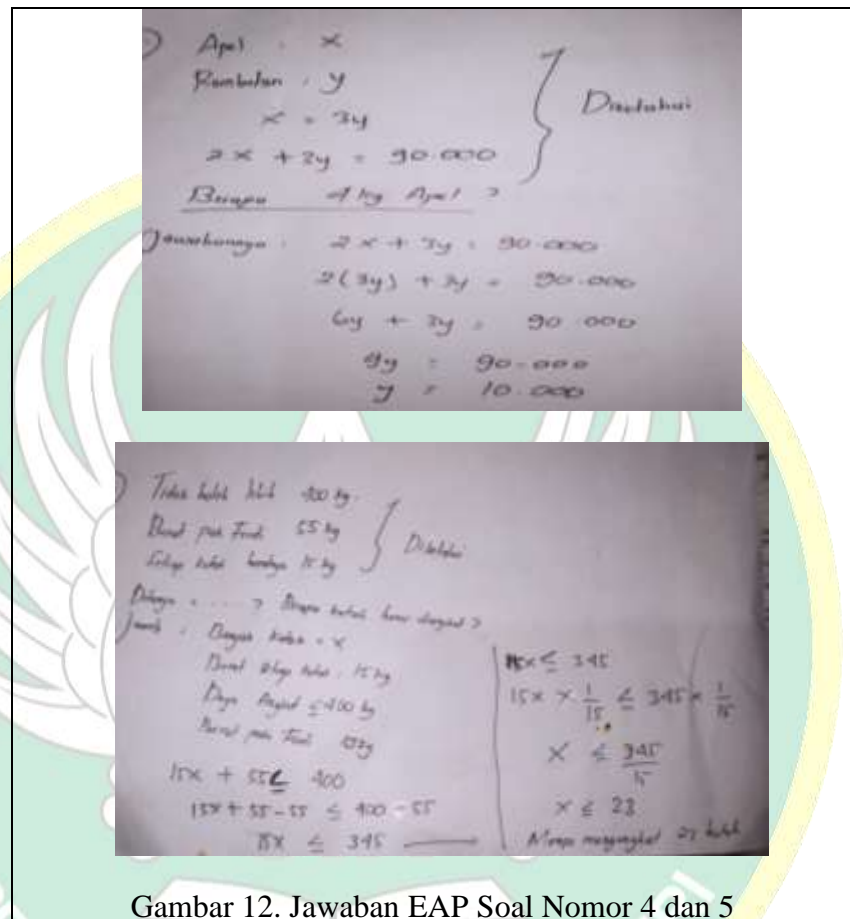 ) Apel : x
Rambutan : y
x = 3y
2x + 3y = 90.000
Diketahui
Berapa 4 kg Apel ?
Jawabannya : 2x + 3y = 90.000
2(3y) + 3y = 90.000
6y + 3y = 90.000
9y = 90.000
y = 10.000
) Tidak boleh lebih 400 kg.
Berat pak 55 kg
Setiap kotak 15 kg
Diketahui
..... ? Berapa kotak diangkut ?
Jawab : Banyak kotak = x
Berat setiap kotak : 15 kg
Daya Angkut ≤ 400 kg
Berat pak
15x + 55 ≤ 400
15x + 55 - 55 ≤ 400 - 55
15x ≤ 345
15x ≤ 345
15x × 1/15 ≤ 345 × 1/15
x ≤ 345/15
x ≤ 23
mengangkut 23 kotak
Gambar 12. Jawaban EAP Soal Nomor 4 dan 5